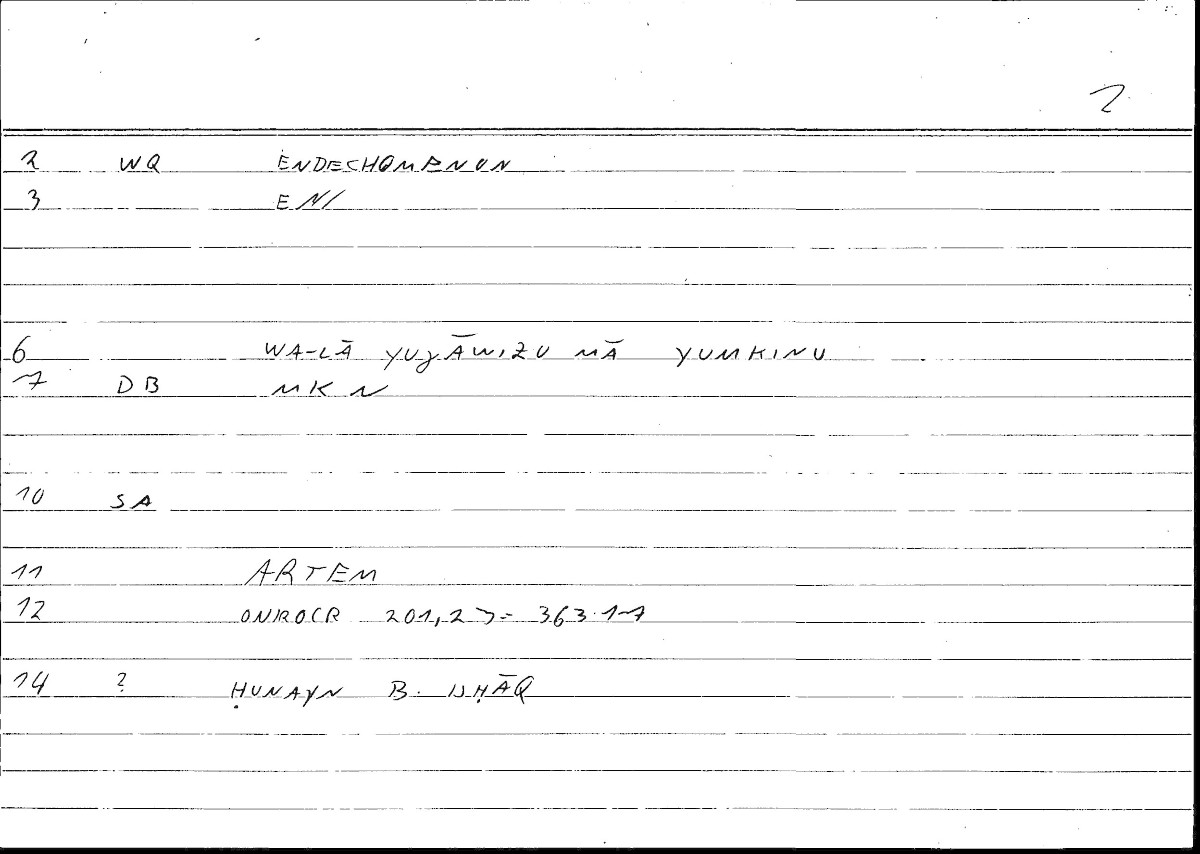 2
2 WQ ENDECHOMENON
3 ENI
6 WA-LĀ YUǧĀWIZU MĀ YUMKINU
7 DB MKN
10 SA
11 ARTEM
12 ONIROCR 201,23 = 363.1-7
14 ? ḤUNAYN B. ISḤĀQ